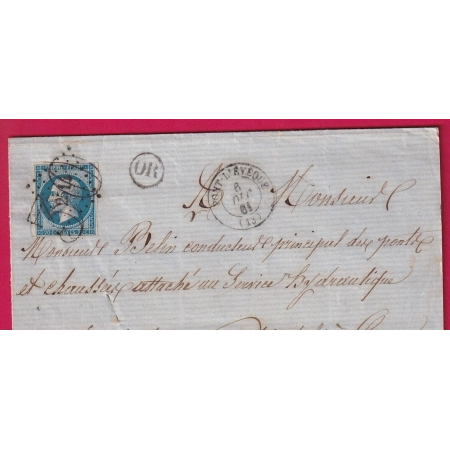 OR
PONT-L'EVEQUE
6
DEC
61
(13)
A Monsieur
Monsieur Belin conducteur principal des ponts
et chaussées attaché au Service hydraulique